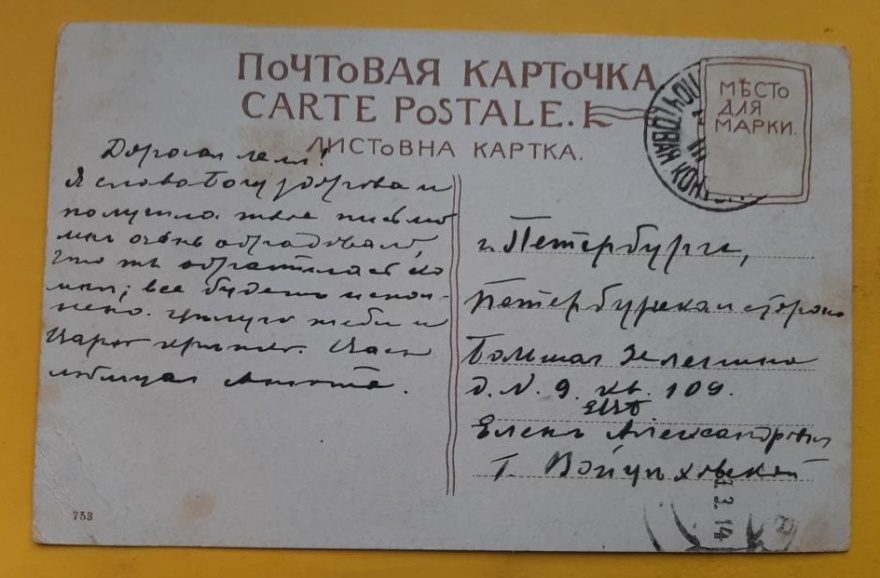 ПОЧТОВАЯ КАРТОЧКА
CARTE POSTALE.
ЛИСТОВНА КАРТКА.
МѢСТО
ДЛЯ
МАРКИ.
ПОЧТОВАЯ КОН
Дорогая Леля!
Я слава Богу здорова и
получила твое письмо
мнѣ очень обрадовало,
что ты обратилась ко
мнѣ; все будетъ испол-
нено. Цѣлую тебя и
крѣпко.
любящая Анюта.
г. Петербургъ,
Петербургская сторона
Большая Зеленина
д. N. 9. кв. 109.
ЕВБ
Еленѣ Александровнѣ
Г. Войцѣховской
3.2.14
753